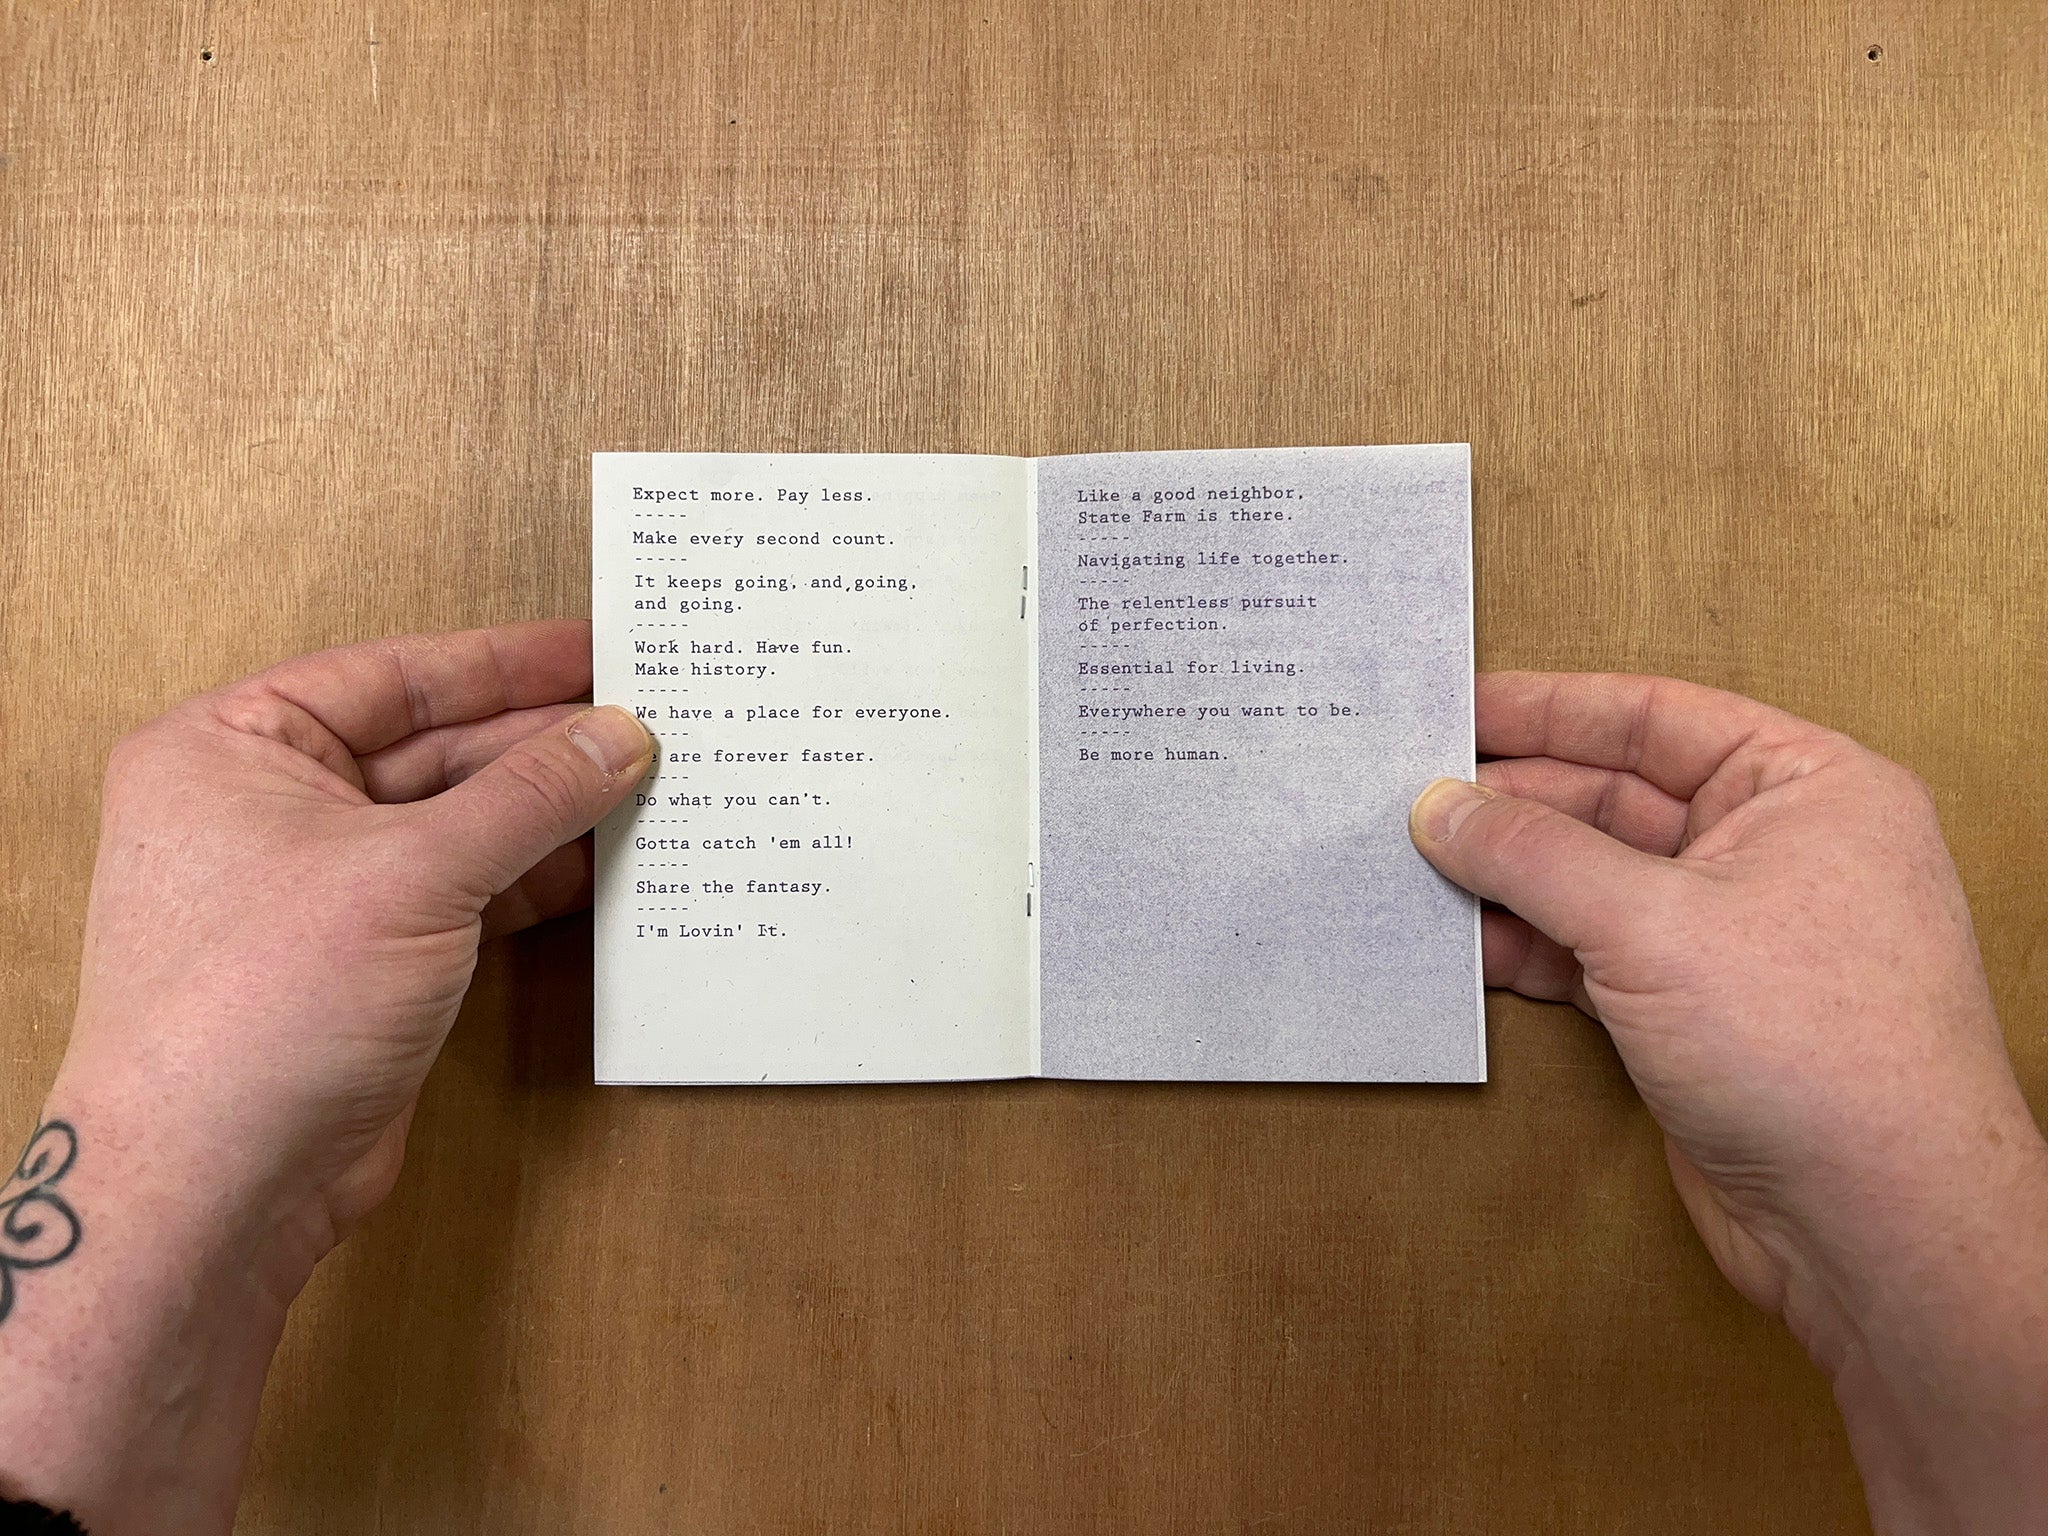 Expect more. Pay less.
-----
Make every second count.
-----
It keeps going, and going,
and going.
-----
Work hard. Have fun.
Make history.
-----
We have a place for everyone.
-----
are forever faster.
-----
Do what you can't.
-----
Gotta catch 'em all!
-----
Share the fantasy.
-----
I'm Lovin' It.
Like a good neighbor,
State Farm is there.
-----
Navigating life together.
-----
The relentless pursuit
of perfection.
-----
Essential for living.
-----
Everywhere you want to be.
-----
Be more human.